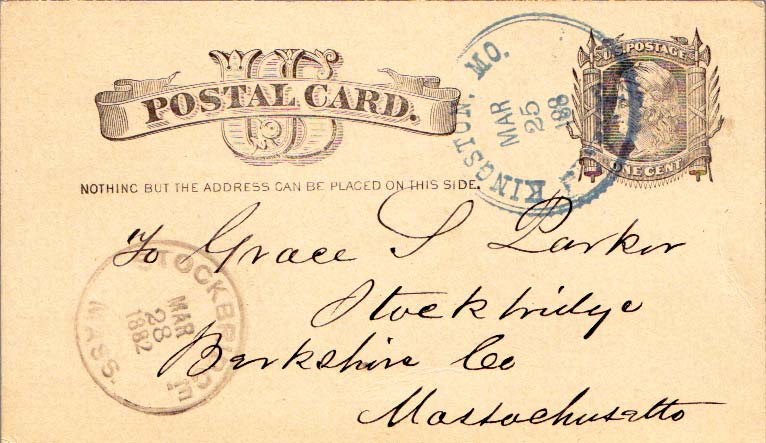 U.S. POSTAGE
ONE CENT
POSTAL CARD.
NOTHING BUT THE ADDRESS CAN BE PLACED ON THIS SIDE.
KINGSTON, MO.
MAR
25
188
To Grace S Parker
Stockbridge
Berkshire Co
Massachusetts
STOCKBRIDGE
MAR
28
1882
MASS.